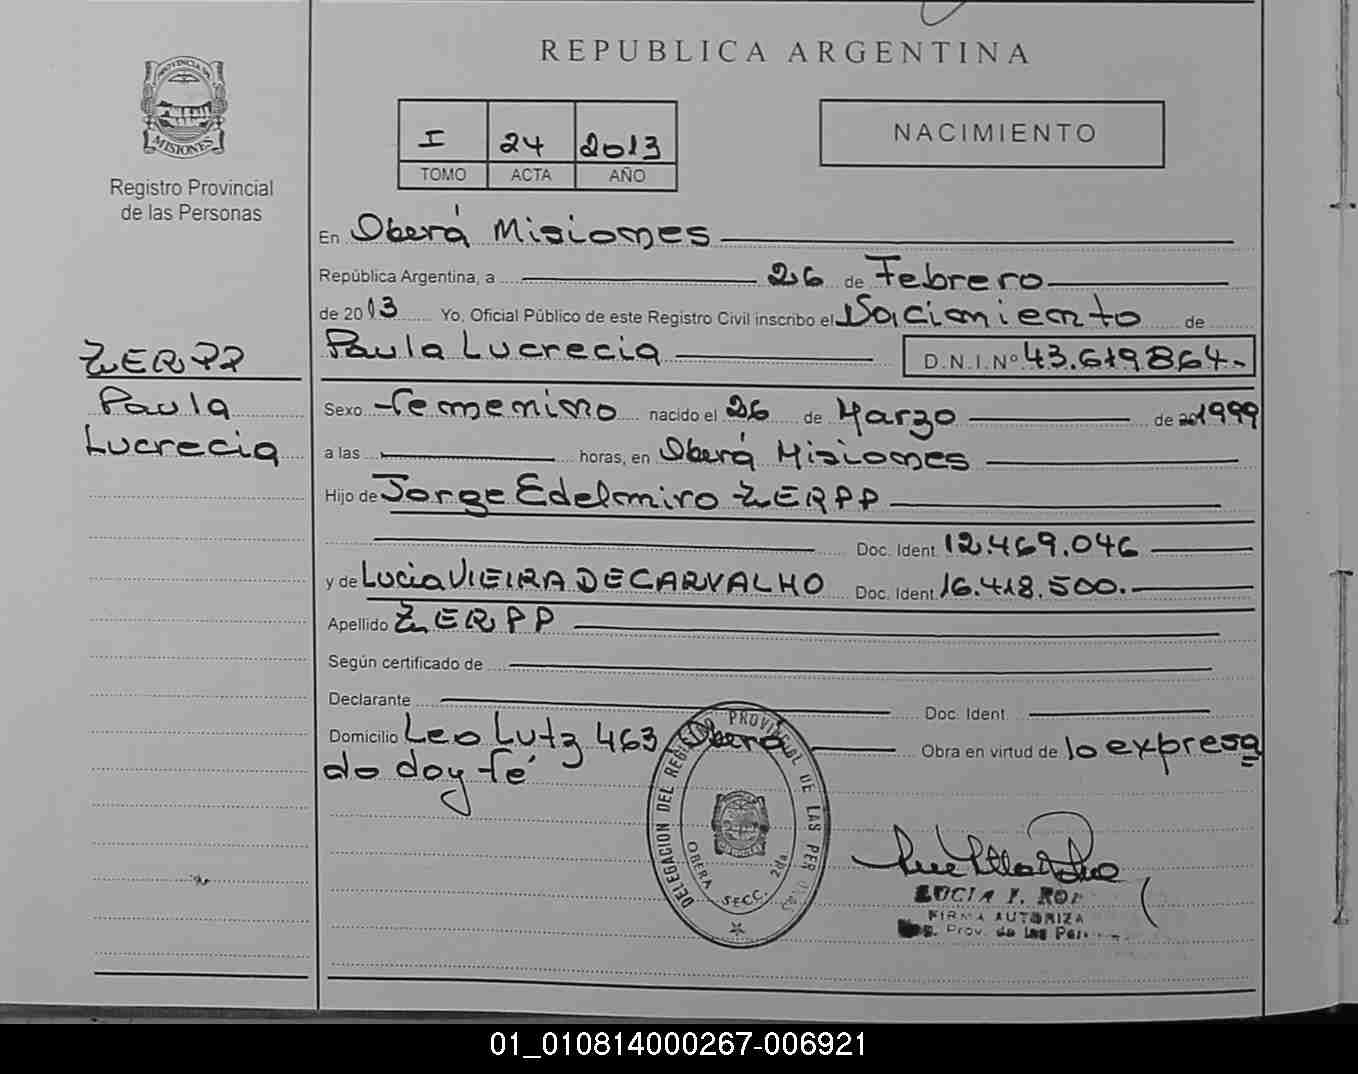 REPUBLICA ARGENTINA
PROVINCIA DE
MISIONES
Registro Provincial
de las Personas
I 24 2013
TOMO ACTA AÑO
NACIMIENTO
En Oberá Misiones
República Argentina, a 26 de Febrero
de 2013 Yo, Oficial Público de este Registro Civil inscribo el Nacimiento de
Paula Lucrecia D.N.I.Nº 43.619864.-
ZERPP
Paula
Lucrecia
Sexo Femenino nacido el 26 de Marzo de 1999
a las horas, en Oberá Misiones
Hijo de Jorge Edelmiro ZERPP
Doc. Ident. 12.469.046
y de Lucia VIEIRA DE CARVALHO Doc. Ident. 16.418.500.-
Apellido ZERPP
Según certificado de
Declarante Doc. Ident.
Domicilio Leo Lutz 463 Oberá Obra en virtud de lo expresa
do doy fé
DELEGACION DEL REGISTRO PROVINCIAL DE LAS PERSONAS
OBERA SECC. 2da
LUCIA I. ROD
FIRMA AUTORIZA
Reg. Prov. de las Per
01_010814000267-006921